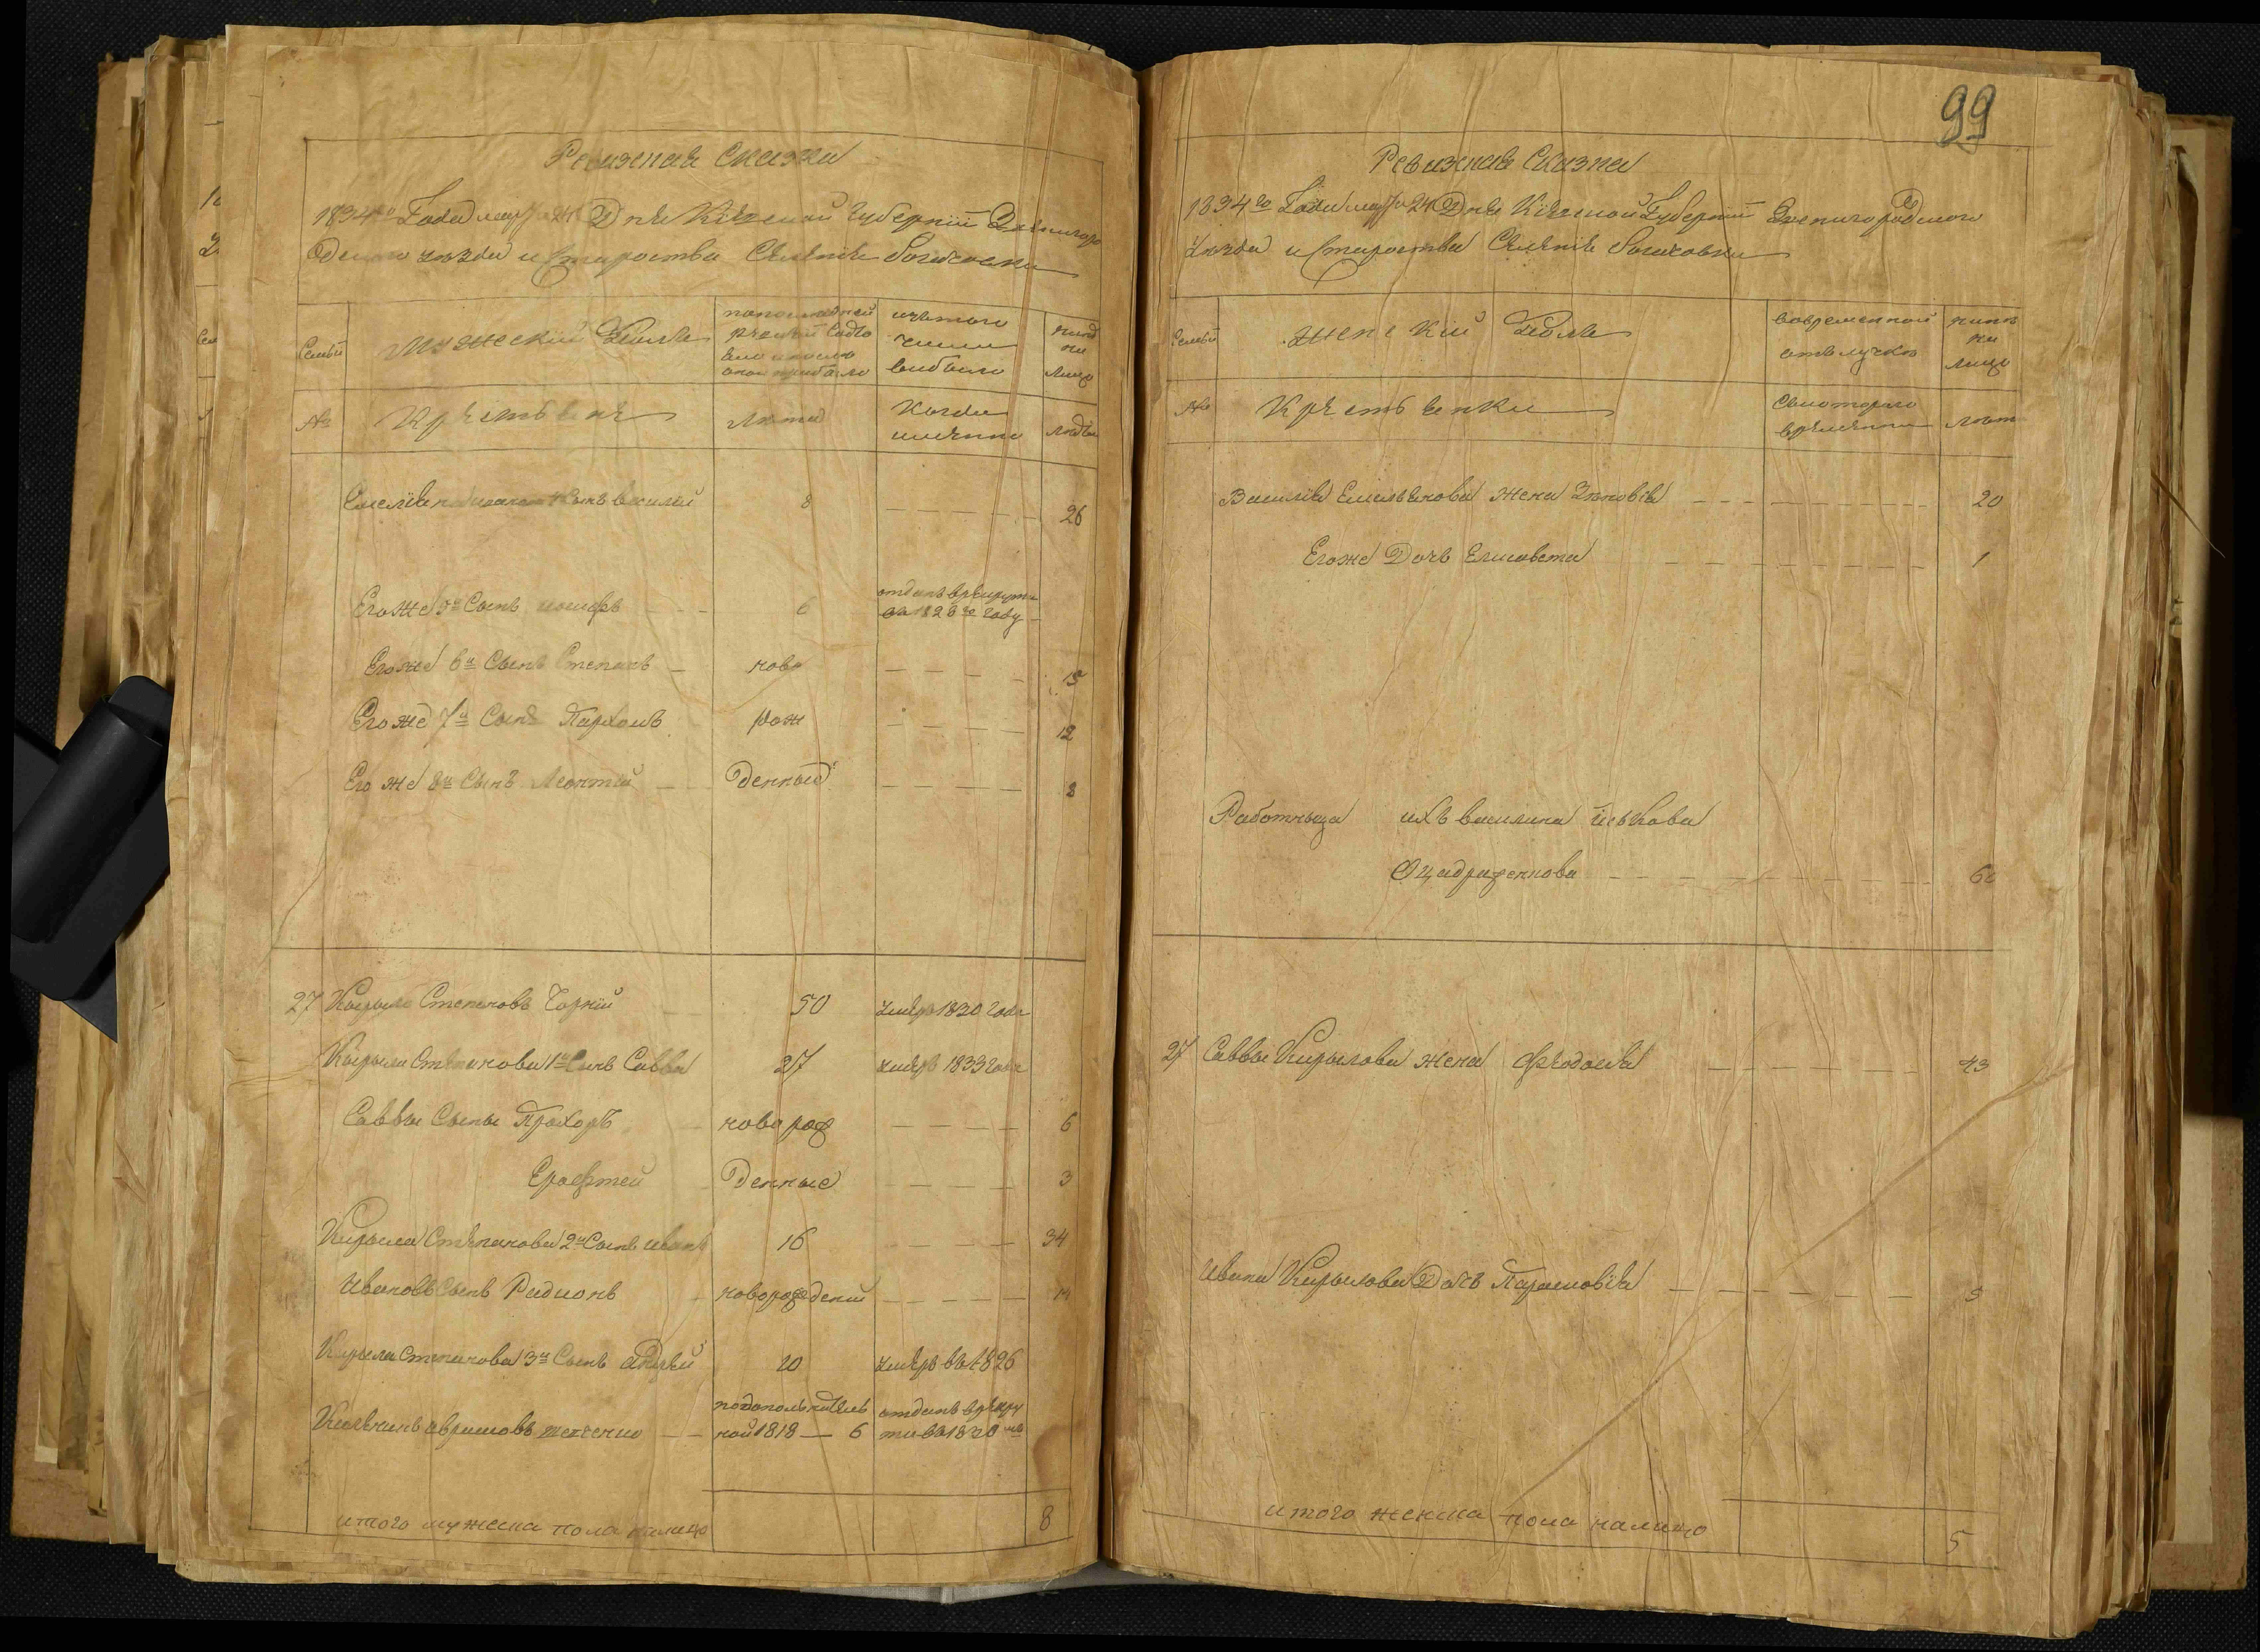 Ревизная Сказка
1834го Года марта 24 Дня Кіевской Губерніи Звенигоро
дского уезда и Староства Селеніе
Семьи
Мужескій Полъ
по последней
ревизіи состо
яло и после
оной прибыло
изъ того
числа
выбыло
ныне
на
лицо
№
Крестьяне
Лета
Когда
именно
Лета
4 Сынъ Василій 8 26
Егоже 5й Сынъ 6 отданъ в рекруты
въ 1828го Году
Егоже 6й Сынъ Степанъ ново 15
Егоже 7й Сынъ Пархомъ рож 12
Егоже 8й Сынъ Леонтій денный 8
27 Кирыло Степановъ Чорній 50 умеръ 1820 Года
Кирыла Степанова 1й Сынъ Савва 37 умеръ 1833 Года
Саввы Сыны Прохоръ новорож 6
Ерофтей Денные 3
Кирыла Степанова 2й Сынъ Иванъ 16 34
Ивановъ Сынъ Радионъ новорожденій 14
Кирыла Степанова 3й Сынъ Андрей 20 умеръ въ 1826
аврамовъ
по дополнитель отданъ в рекру
ной 1818 — 6 ты въ 1820мъ
итого мужеска пола налицо 8
99
Ревизная Сказка
1834го Года марта 24 Дня Кіевской Губерніи Звенигородского
Уезда и Староства Селеніе
Семьи
Женскій Полъ
во временной
отлучке
ныне
на
лицо
№
Крестьянки
С которого
времени
Лета
Василія Емельянова жена Зеновія 20
Егоже Дочь Елисавета 1
Работница ихъ Василина
60
27 Саввы Кирылова жена Феодосія 43
Ивана Кирылова Дочь Парасковія 5
итого женска пола налицо 5